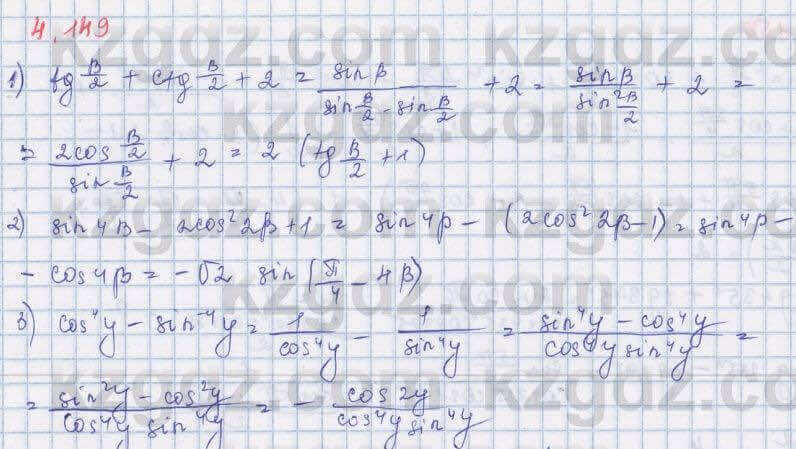 4.149
1) tg β/2 + ctg β/2 + 2 = sin β / (sin β/2 · sin β/2) + 2 = sin β / sin² β/2 + 2 =
= 2cos β/2 / sin β/2 + 2 = 2 (tg β/2 + 1)
2) sin 4β - 2cos² 2β + 1 = sin 4β - (2cos² 2β - 1) = sin 4β -
- cos 4β = - √2 sin (π/4 - 4β)
3) cos⁴y - sin⁻⁴y = 1/cos⁴y - 1/sin⁴y = (sin⁴y - cos⁴y) / (cos⁴y sin⁴y) =
= (sin²y - cos²y) / (cos⁴y sin⁴y) = - cos 2y / (cos⁴y sin⁴y)
kzgdz.com